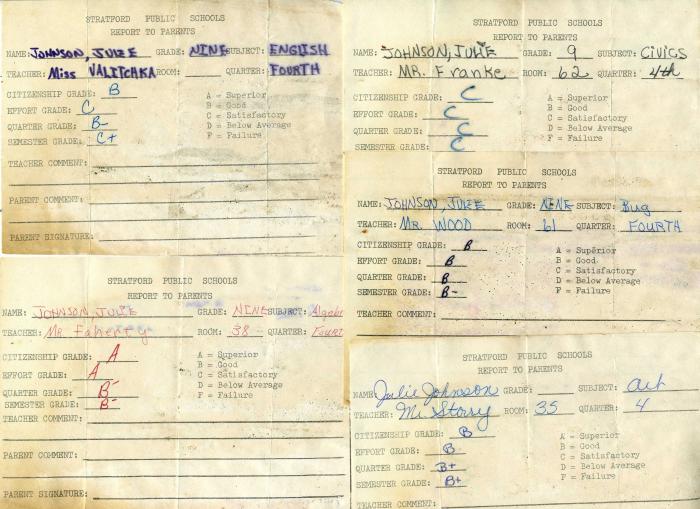 STRATFORD PUBLIC SCHOOLS
REPORT TO PARENTS
NAME: JOHNSON, JULIE GRADE: NINE SUBJECT: ENGLISH
TEACHER: Miss VALITCHKA ROOM: QUARTER: FOURTH
CITIZENSHIP GRADE: B
EFFORT GRADE: C
QUARTER GRADE: B-
SEMESTER GRADE: C+
A = Superior
B = Good
C = Satisfactory
D = Below Average
F = Failure
TEACHER COMMENT:
PARENT COMMENT:
PARENT SIGNATURE:
STRATFORD PUBLIC SCHOOLS
REPORT TO PARENTS
NAME: JOHNSON, JULIE GRADE: NINE SUBJECT: Algebr
TEACHER: MR Faherty ROOM: 38 QUARTER: FOURT
CITIZENSHIP GRADE: A
EFFORT GRADE: A
QUARTER GRADE: B-
SEMESTER GRADE: B-
A = Superior
B = Good
C = Satisfactory
D = Below Average
F = Failure
TEACHER COMMENT:
PARENT COMMENT:
PARENT SIGNATURE:
STRATFORD PUBLIC SCHOOLS
REPORT TO PARENTS
NAME: JOHNSON, JULIE GRADE: 9 SUBJECT: CIVICS
TEACHER: MR. Franke ROOM: 62 QUARTER: 4th
CITIZENSHIP GRADE: C
EFFORT GRADE: C
QUARTER GRADE: C
SEMESTER GRADE: C
A = Superior
B = Good
C = Satisfactory
D = Below Average
F = Failure
STRATFORD PUBLIC SCHOOLS
REPORT TO PARENTS
NAME: JOHNSON, JULIE GRADE: NINE SUBJECT: Bug
TEACHER: MR. WOOD ROOM: 61 QUARTER: FOURTH
CITIZENSHIP GRADE: B
EFFORT GRADE: B
QUARTER GRADE: B
SEMESTER GRADE: B-
A = Superior
B = Good
C = Satisfactory
D = Below Average
F = Failure
TEACHER COMMENT:
STRATFORD PUBLIC SCHOOLS
REPORT TO PARENTS
NAME: Julie Johnson GRADE: SUBJECT: Art
TEACHER: M. Storry ROOM: 35 QUARTER: 4
CITIZENSHIP GRADE: B
EFFORT GRADE: B
QUARTER GRADE: B+
SEMESTER GRADE: B+
A = Superior
B = Good
C = Satisfactory
D = Below Average
F = Failure
TEACHER COMMENT: